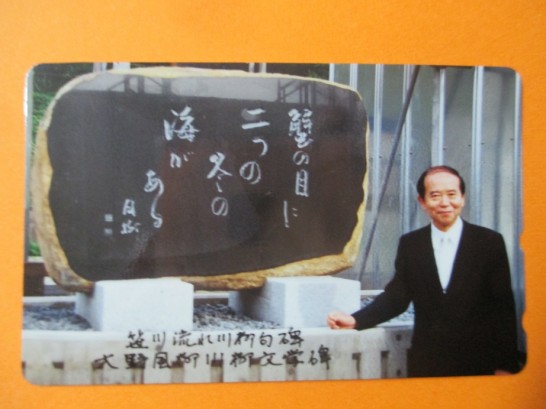 蟹の目に
二つの
冬の
海が
ある
笹川流れ川柳句碑
大野風柳川柳文学碑